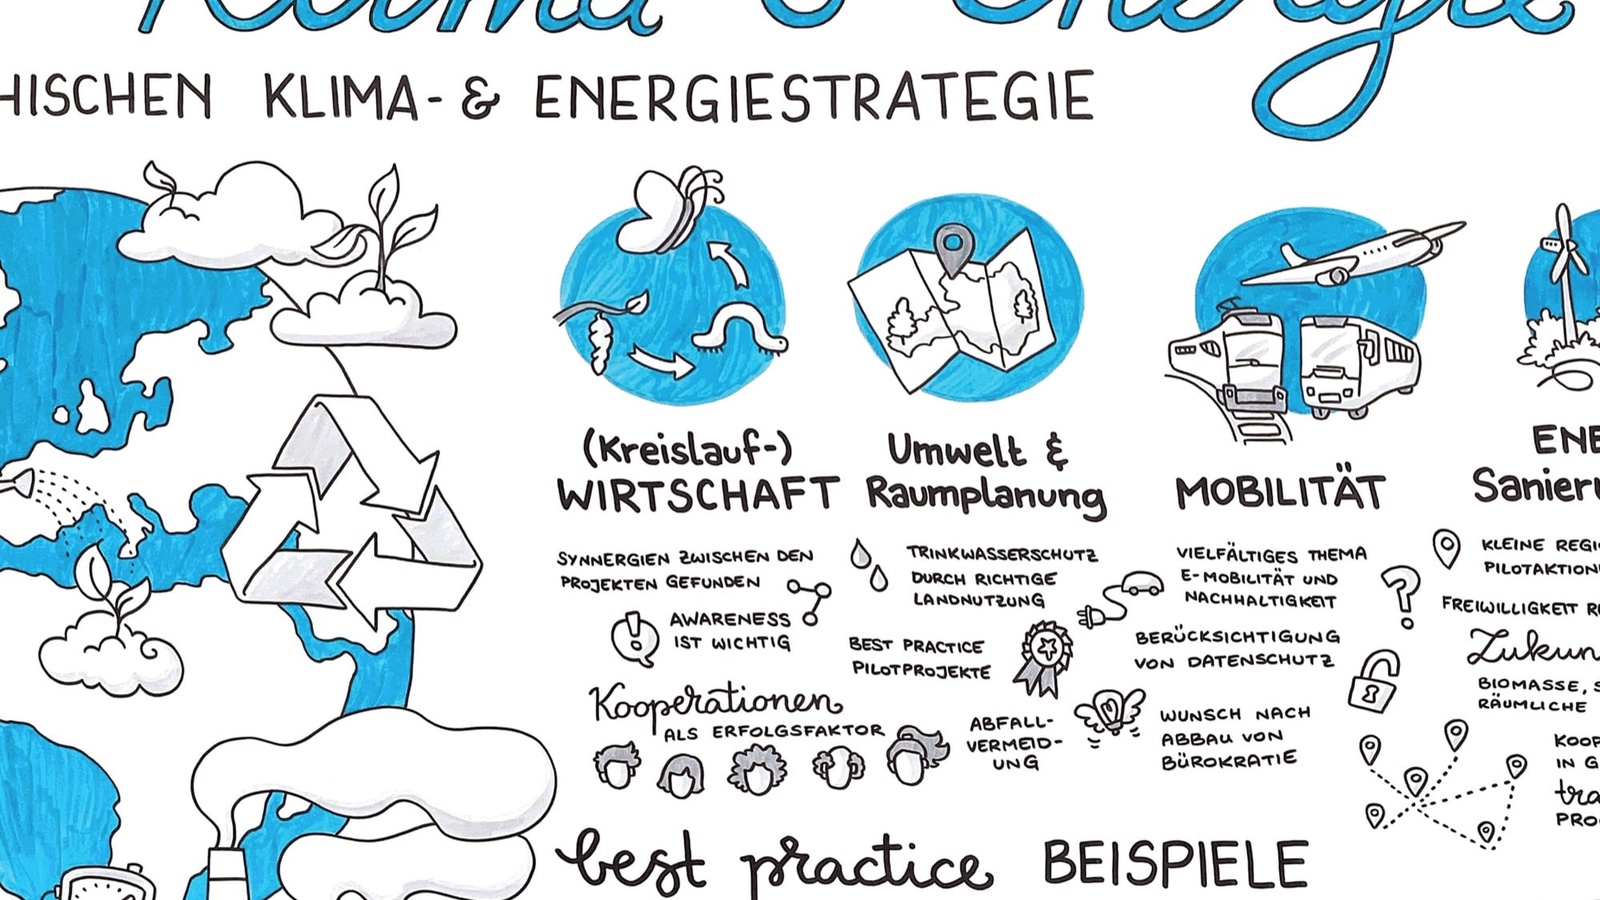 Klima & Energie
HISCHEN KLIMA- & ENERGIESTRATEGIE
(Kreislauf-)
WIRTSCHAFT
SYNNERGIEN ZWISCHEN DEN
PROJEKTEN GEFUNDEN
AWARENESS
IST WICHTIG
Kooperationen
ALS ERFOLGSFAKTOR
Umwelt &
Raumplanung
TRINKWASSERSCHUTZ
DURCH RICHTIGE
LANDNUTZUNG
BEST PRACTICE
PILOTPROJEKTE
ABFALL-
VERMEID-
UNG
MOBILITÄT
VIELFÄLTIGES THEMA
E-MOBILITÄT UND
NACHHALTIGKEIT
BERÜCKSICHTIGUNG
VON DATENSCHUTZ
WUNSCH NACH
ABBAU VON
BÜROKRATIE
ENE
Sanier
KLEINE REGI
PILOTAKTION
FREIWILLIGKEIT R
Zukun
BIOMASSE, S
RÄUMLICHE
KOOP
IN G
tra
PRO
best practice BEISPIELE